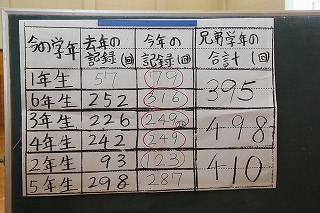 今の学年 去年の記録(回) 今年の記録(回) 兄弟学年の合計(回)
1年生 57 79 395
6年生 252 316
3年生 226 249 498
4年生 242 249
2年生 93 123 410
5年生 298 287